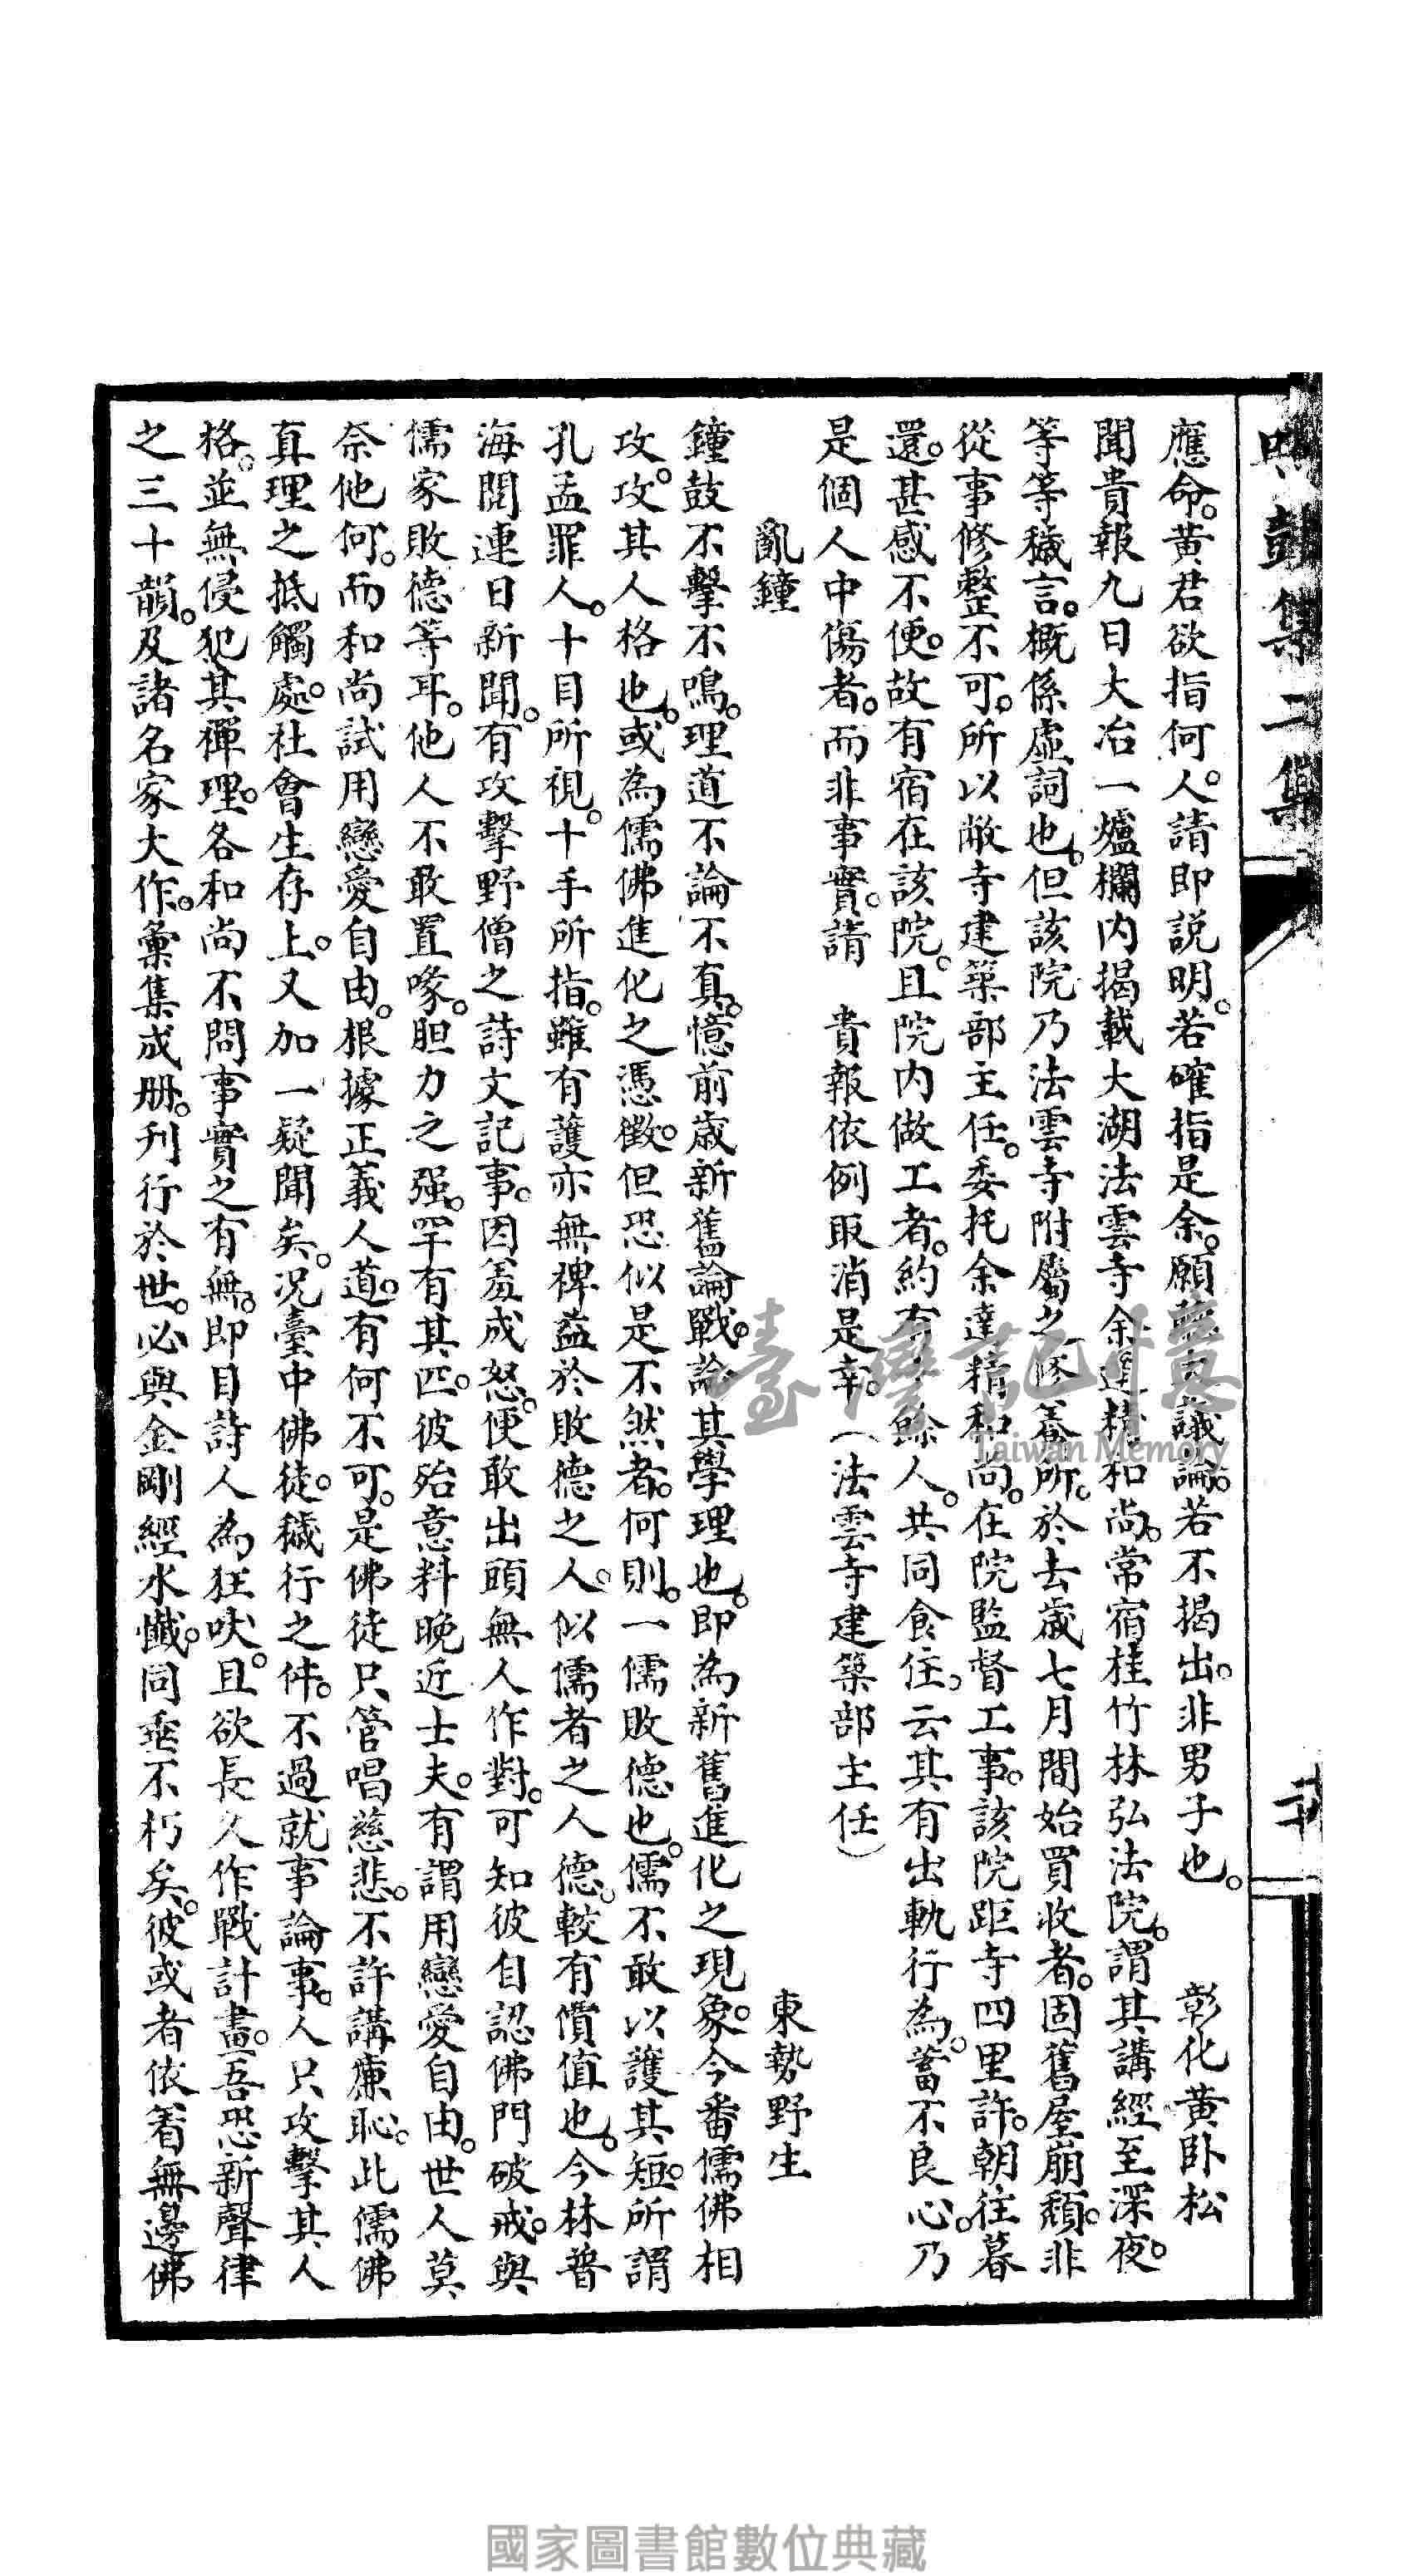 鼓集二集
應命。黃君欲指何人。請即說明。若確指是余。願議論。若不揭出。非男子也。　彰化黃臥松
聞貴報九日大冶一爐欄內揭載大湖法雲寺余達精和尚。常宿桂竹林弘法院。謂其講經至深夜。
等等穢言。概係虛詞也。但該院乃法雲寺附屬之修養所。於去歲七月間始買收者。固舊屋崩頹。非
從事修整不可。所以敝寺建築部主任。委托余達精和尚。在院監督工事。該院距寺四里許。朝往暮
還。甚感不便。故有宿在該院。且院內做工者。約有餘人。共同食住。云其有出軌行為。蓄不良心。乃
是個人中傷者。而非事實。請　貴報依例取消是幸。（法雲寺建築部主任）
亂鐘　東勢野生
鐘鼓不擊不鳴。理道不論不真。憶前歲新舊論戰。論其學理也。即為新舊進化之現象。今番儒佛相
攻。攻其人格也。或為儒佛進化之憑徵。但恐似是不然者。何則。一儒敗德也。儒不敢以護其短。所謂
孔孟罪人。十目所視。十手所指。雖有護亦無裨益於敗德之人。似儒者之人德。較有價值也。今林普
海閱連日新聞。有攻擊野僧之詩文記事。因羞成怒。便敢出頭無人作對。可知彼自認佛門破戒。與
儒家敗德等耳。他人不敢置喙。胆力之强。罕有其匹。彼殆意料晚近士夫。有謂用戀愛自由。世人莫
奈他何。而和尚試用戀愛自由。根據正義人道。有何不可。是佛徒只管唱慈悲。不許講廉恥。此儒佛
真理之抵觸處。社會生存上。又加一疑聞矣。况臺中佛徒。穢行之件。不過就事論事。人只攻擊其人
格。並無侵犯其禪理。各和尚不問事實之有無。即目詩人為狂吠。且欲長久作戰計畫。吾恐新聲律
之三十韻。及諸名家大作。彙集成册。刊行於世。必與金剛經水懺。同垂不朽矣。彼或者依着無邊佛
臺灣記憶
Taiwan Memory
國家圖書館數位典藏